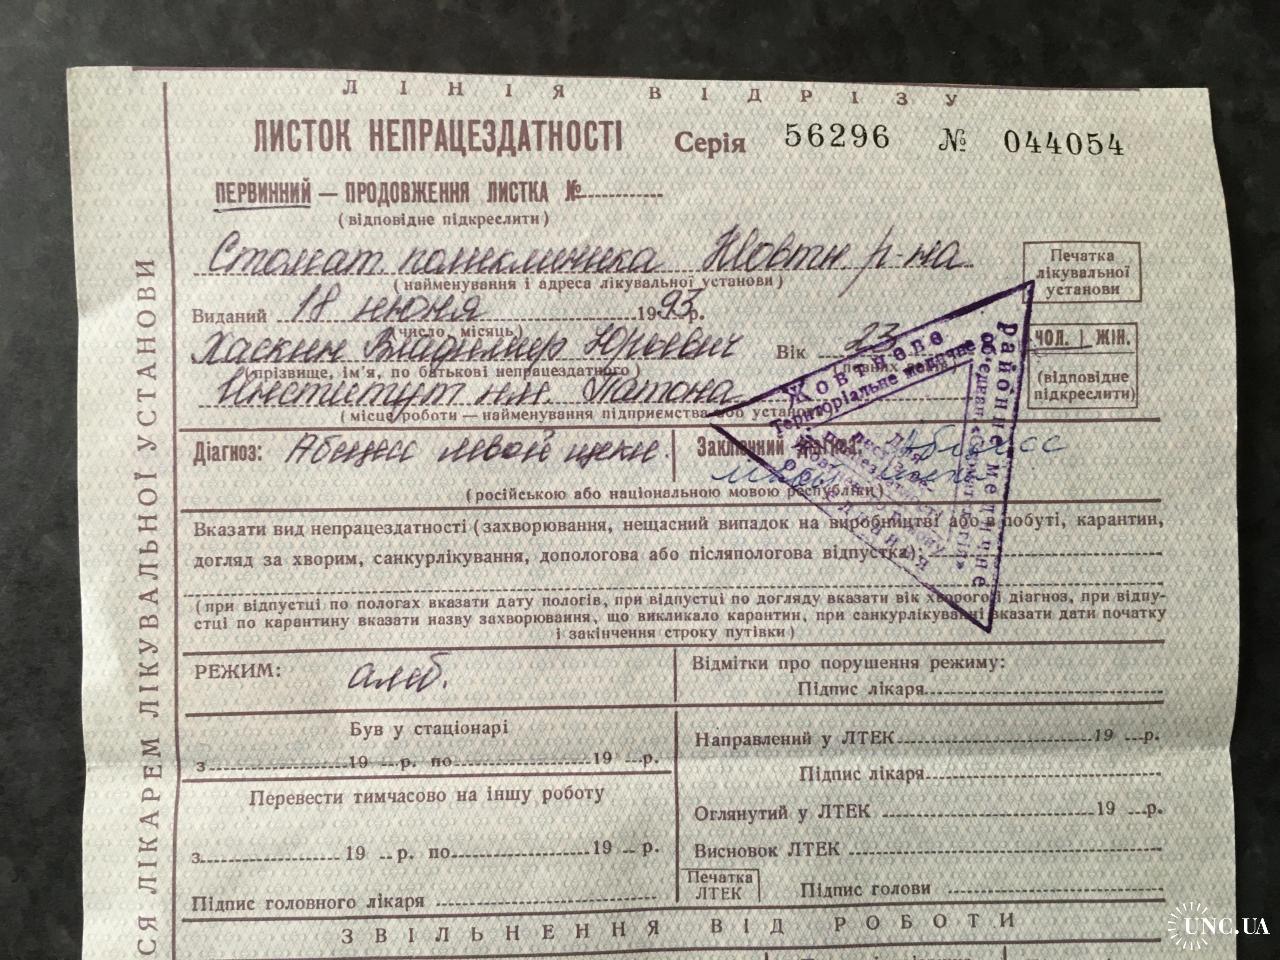 ЛІНІЯ ВІДРІЗУ
ЛИСТОК НЕПРАЦЕЗДАТНОСТІ Серія 56296 № 044054
ПЕРВИННИЙ — ПРОДОВЖЕННЯ ЛИСТКА №
(відповідне підкреслити)
Стомат поликлиника Жовтн р-на
(найменування і адреса лікувальної установи)
Печатка лікувальної установи
Виданий 18 июня 1993 р.
(число, місяць)
Хаскин Владимир Юрьевич Вік 23
(прізвище, ім'я, по батькові непрацездатного)
ЧОЛ. ЖІН.
(відповідне підкреслити)
Институт им. Патона
(місце роботи — найменування підприємства або установи)
Діагноз: Абсцесс левой щеки. Заключний діагноз: Абсцесс
левой щеки
(російською або національною мовою республіки)
Жовтневе
Територіальне медичне
районне медичне
Вказати вид непрацездатності (захворювання, нещасний випадок на виробництві або в побуті, карантин,
догляд за хворим, санкурлікування, допологова або післяпологова відпустка):
(при відпустці по пологах вказати дату пологів, при відпустці по догляду вказати вік хворого і діагноз, при відпу-
стці по карантину вказати назву захворювання, що викликало карантин, при санкурлікуванні вказати дати початку
і закінчення строку путівки)
РЕЖИМ: амб. Відмітки про порушення режиму:
Підпис лікаря
Був у стаціонарі
з 19 р. по 19 р.
Направлений у ЛТЕК 19 р.
Підпис лікаря
Перевести тимчасово на іншу роботу
Оглянутий у ЛТЕК 19 р.
з 19 р. по 19 р.
Висновок ЛТЕК
Печатка ЛТЕК
Підпис голови
Підпис головного лікаря
ЗВІЛЬНЕННЯ ВІД РОБОТИ
СЯ ЛІКАРЕМ ЛІКУВАЛЬНОЇ УСТАНОВИ
UNC.UA